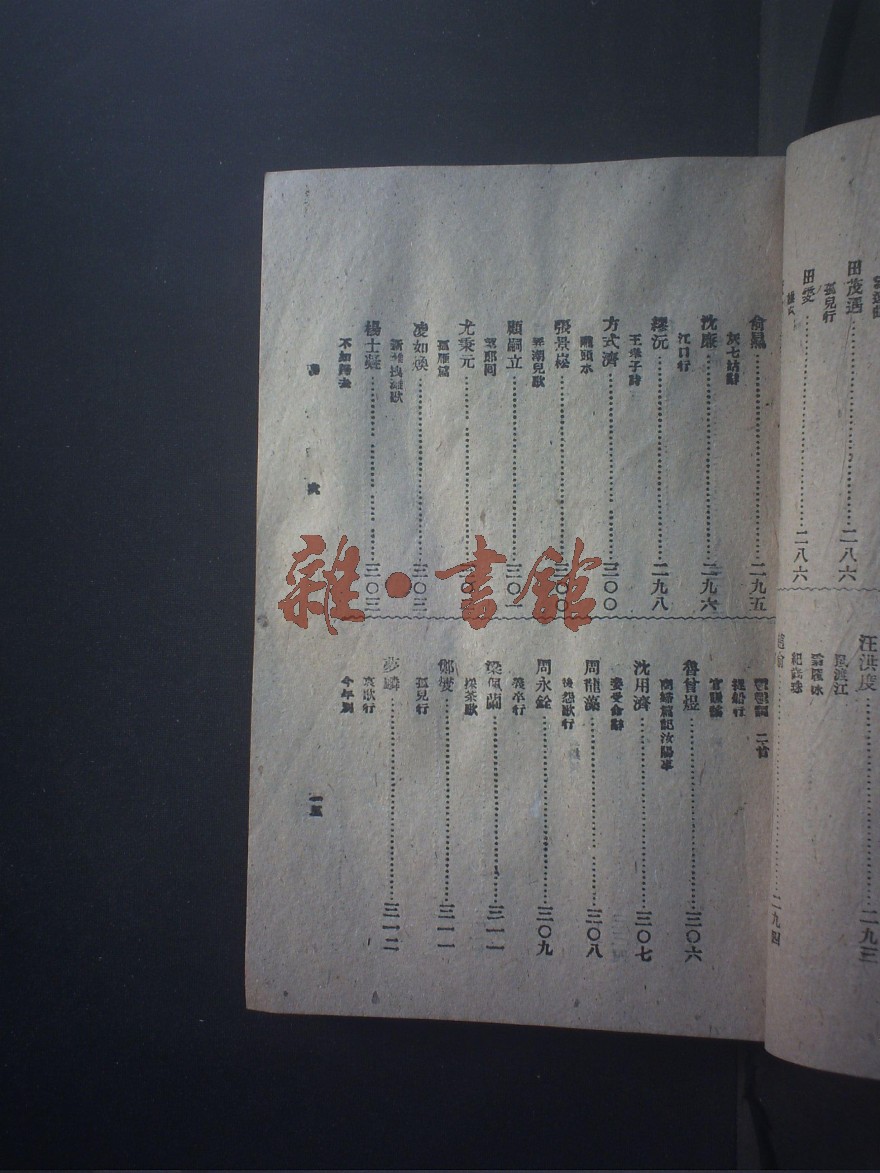 汪洪度……二九三
田茂遇……二八六
孤兒行
田雯……二八六
二九四
二九五
沈廉……二九六
江口行
繆沅……二九八
王孝子詩
方式濟……三〇〇
隴頭水
張景崧……三〇〇
弄潮兒歌
顧嗣立……三〇一
尤秉元……三〇二
孤雁篇
凌如煥……三〇三
楊士凝……三〇三
不如歸去
二首
捉船行
官驛謠
魯曾煜……三〇六
沈用濟……三〇七
周龍藻……三〇八
後怨歌行
周永銓……三〇九
梁佩蘭……三一一
採茶歌
鄭燮……三一一
孤兒行
夢麟……三一二
哀歌行
今年別
次
一五
雜·書館